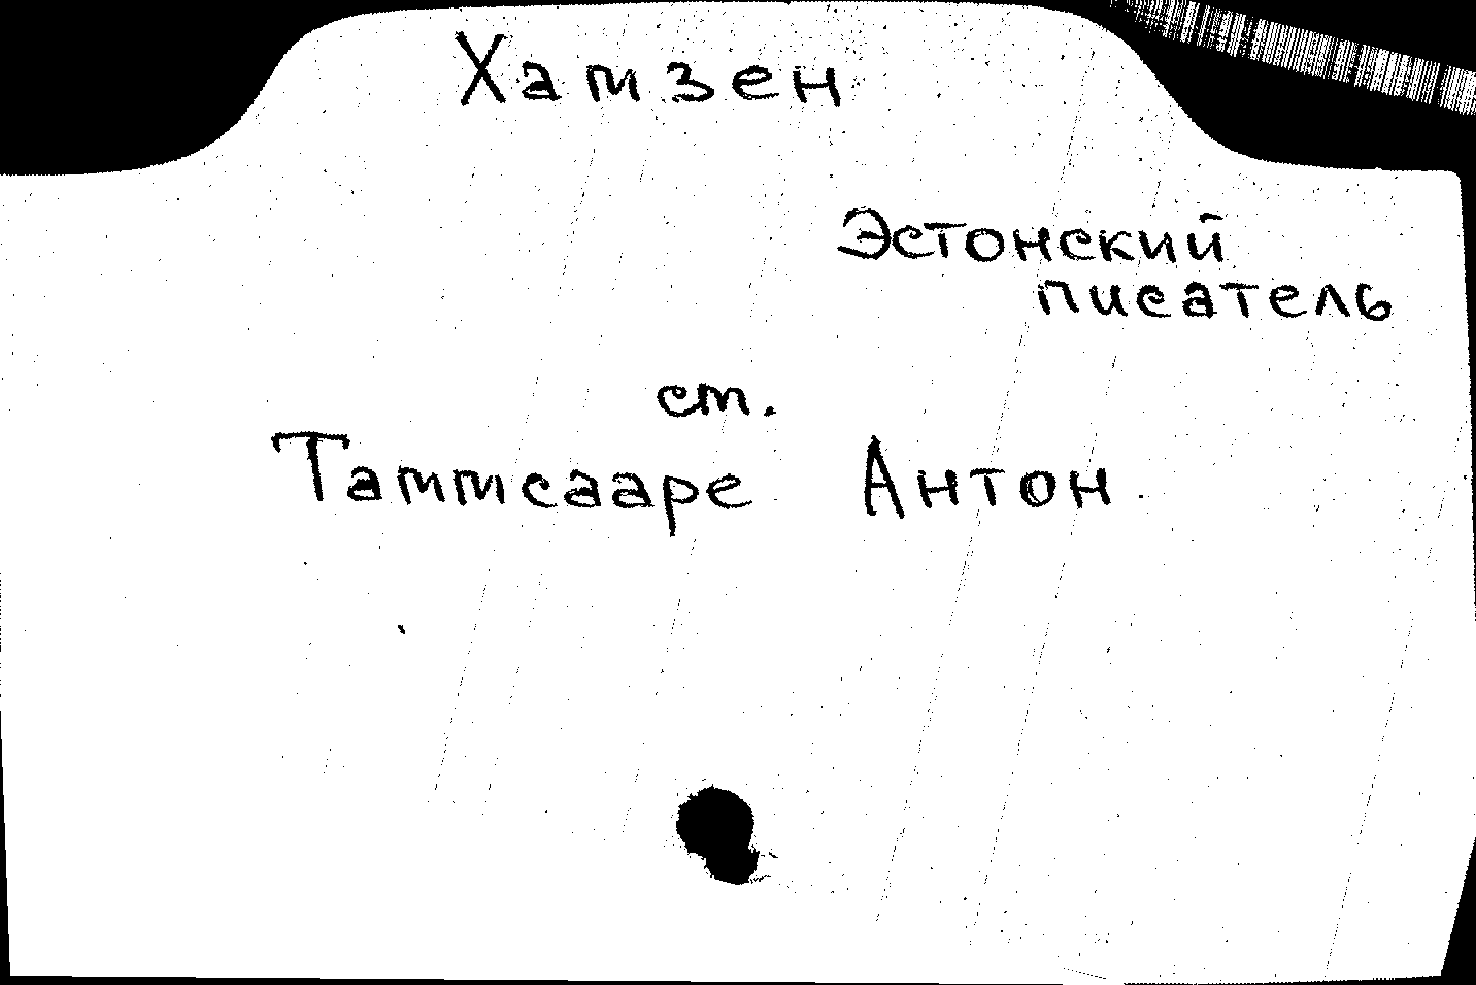 Хамзен
Эстонский
писатель
см.
Таммсааре Антон